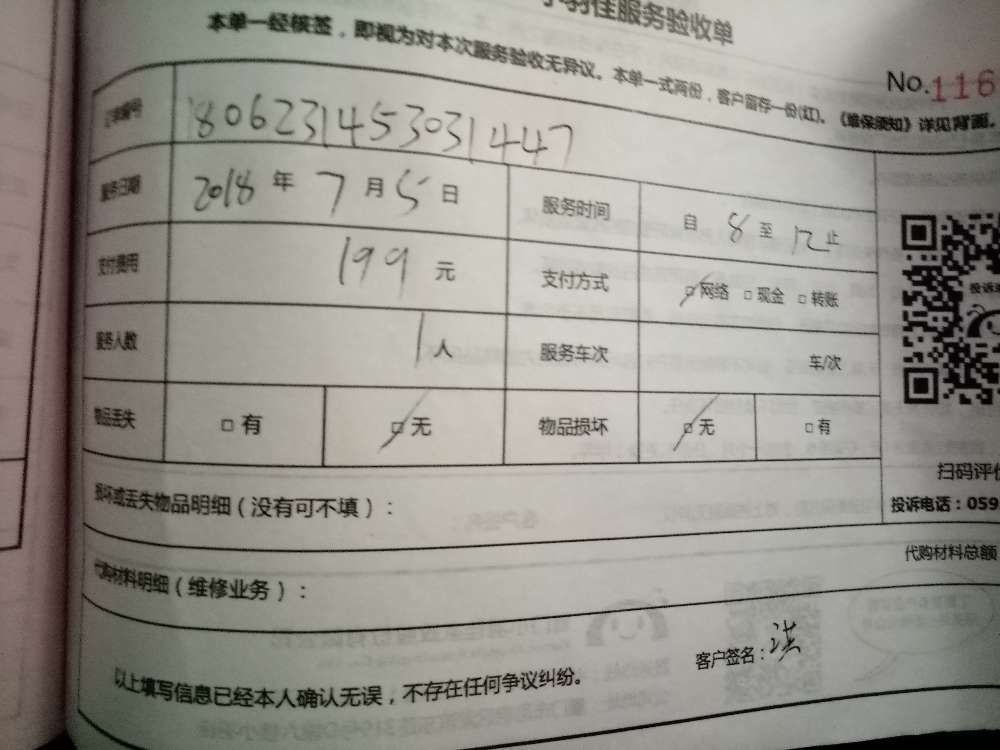 小羽佳服务验收单
本单一经核签，即视为对本次服务验收无异议。本单一式两份，客户留存一份(红)。《维保须知》详见背面。
No.116
订单编号 1806231453031447
服务日期 2018 年 7 月 5 日 服务时间 自 8 至 12 止
支付费用 199 元 支付方式 □网络 □现金 □转账
服务人数 1人 服务车次 车/次
物品丢失 □有 □无 物品损坏 □无 □有
投诉
扫码评价
损坏或丢失物品明细（没有可不填）：
投诉电话：059
代购材料总额
代购材料明细（维修业务）：
以上填写信息已经本人确认无误，不存在任何争议纠纷。
客户签名：洪